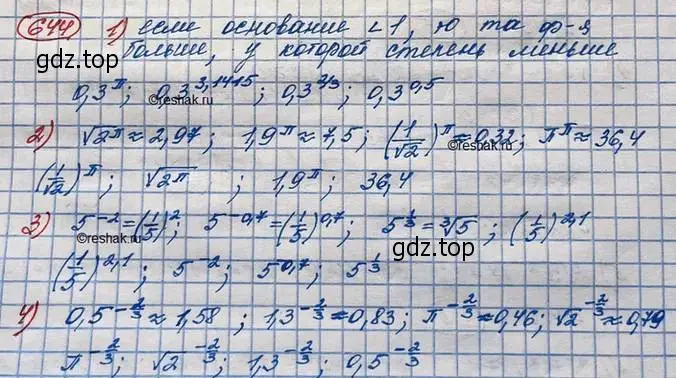 644 1) если основание < 1, то та ф-я
больше, у которой степень меньше
gdz.top
0,3^π ; 0,3^3,1415 ; 0,3^2/3 ; 0,3^0,5
©reshak.ru
2) √2^π ≈ 2,97 ; 1,9^π ≈ 7,5 ; (1/√2)^π ≈ 0,32 ; π^π ≈ 36,4
©reshak.ru
(1/√2)^π ; √2^π ; 1,9^π ; 36,4
3) 5^-2 = (1/5)^2 ; 5^-0,7 = (1/5)^0,7 ; 5^1/3 = ∛5 ; (1/5)^2,1
©reshak.ru
gdz.top
(1/5)^2,1 ; 5^-2 ; 5^0,7 ; 5^1/3
4) 0,5^-2/3 ≈ 1,58 ; 1,3^-2/3 ≈ 0,83 ; π^-2/3 ≈ 0,46 ; √2^-2/3 ≈ 0,79
π^-2/3 ; √2^-2/3 ; 1,3^-2/3 ; 0,5^-2/3